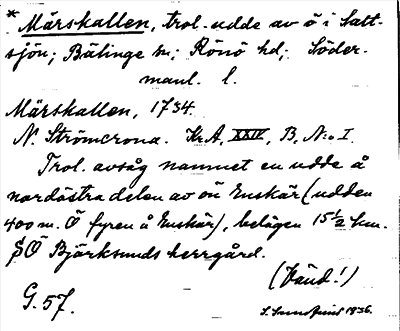 * Märskallen, trol. udde av ö i Salt-
sjön; Bälinge sn; Rönö hd; Söder-
manl. l.
Märskallen, 1734.
N. Strömcrona. Kr.A, XXIV, B, N:o I.
Trol. avsåg namnet en udde å
nordöstra delen av ön Enskär (udden
400 m. Ö fyren å Enskär), belägen 15½ km.
SÖ Björksunds herrgård.
(Vänd!)
G. 57.
1936.